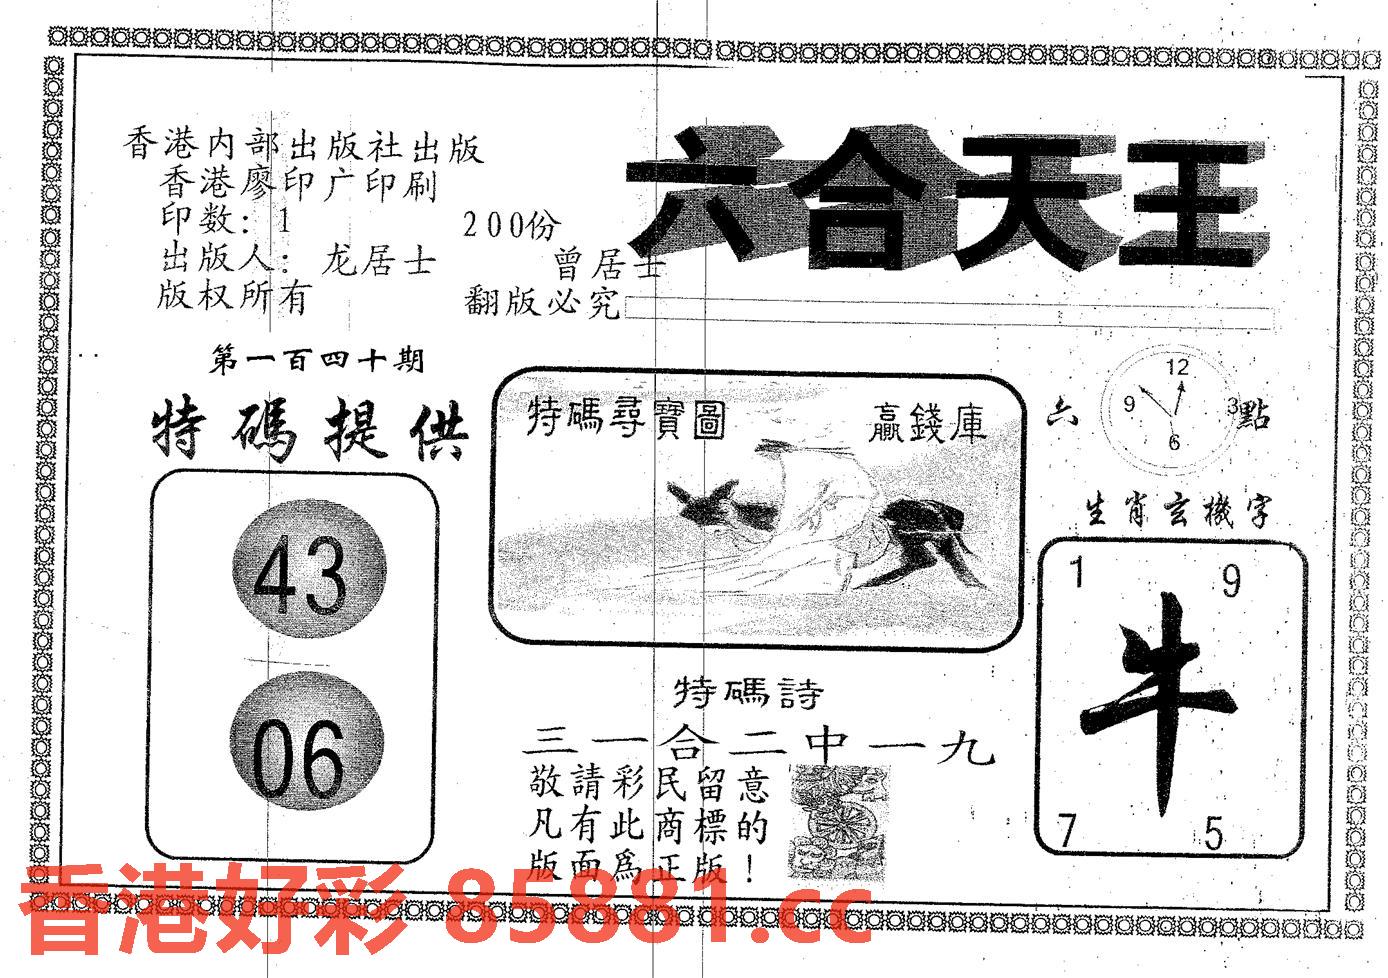 香港内部出版社出版
香港廖印广印刷
印数：1 200份
出版人：龙居士 曾居士
版权所有 翻版必究
六合天王
第一百四十期
特碼提供
43
06
特碼尋寶圖 贏錢庫
六 點
12
9 3
6
生肖玄機字
1 9
牛
7 5
特碼詩
三一合二中一九
敬請彩民留意
凡有此商標的
版面爲正版！
香港好彩 85881.cc